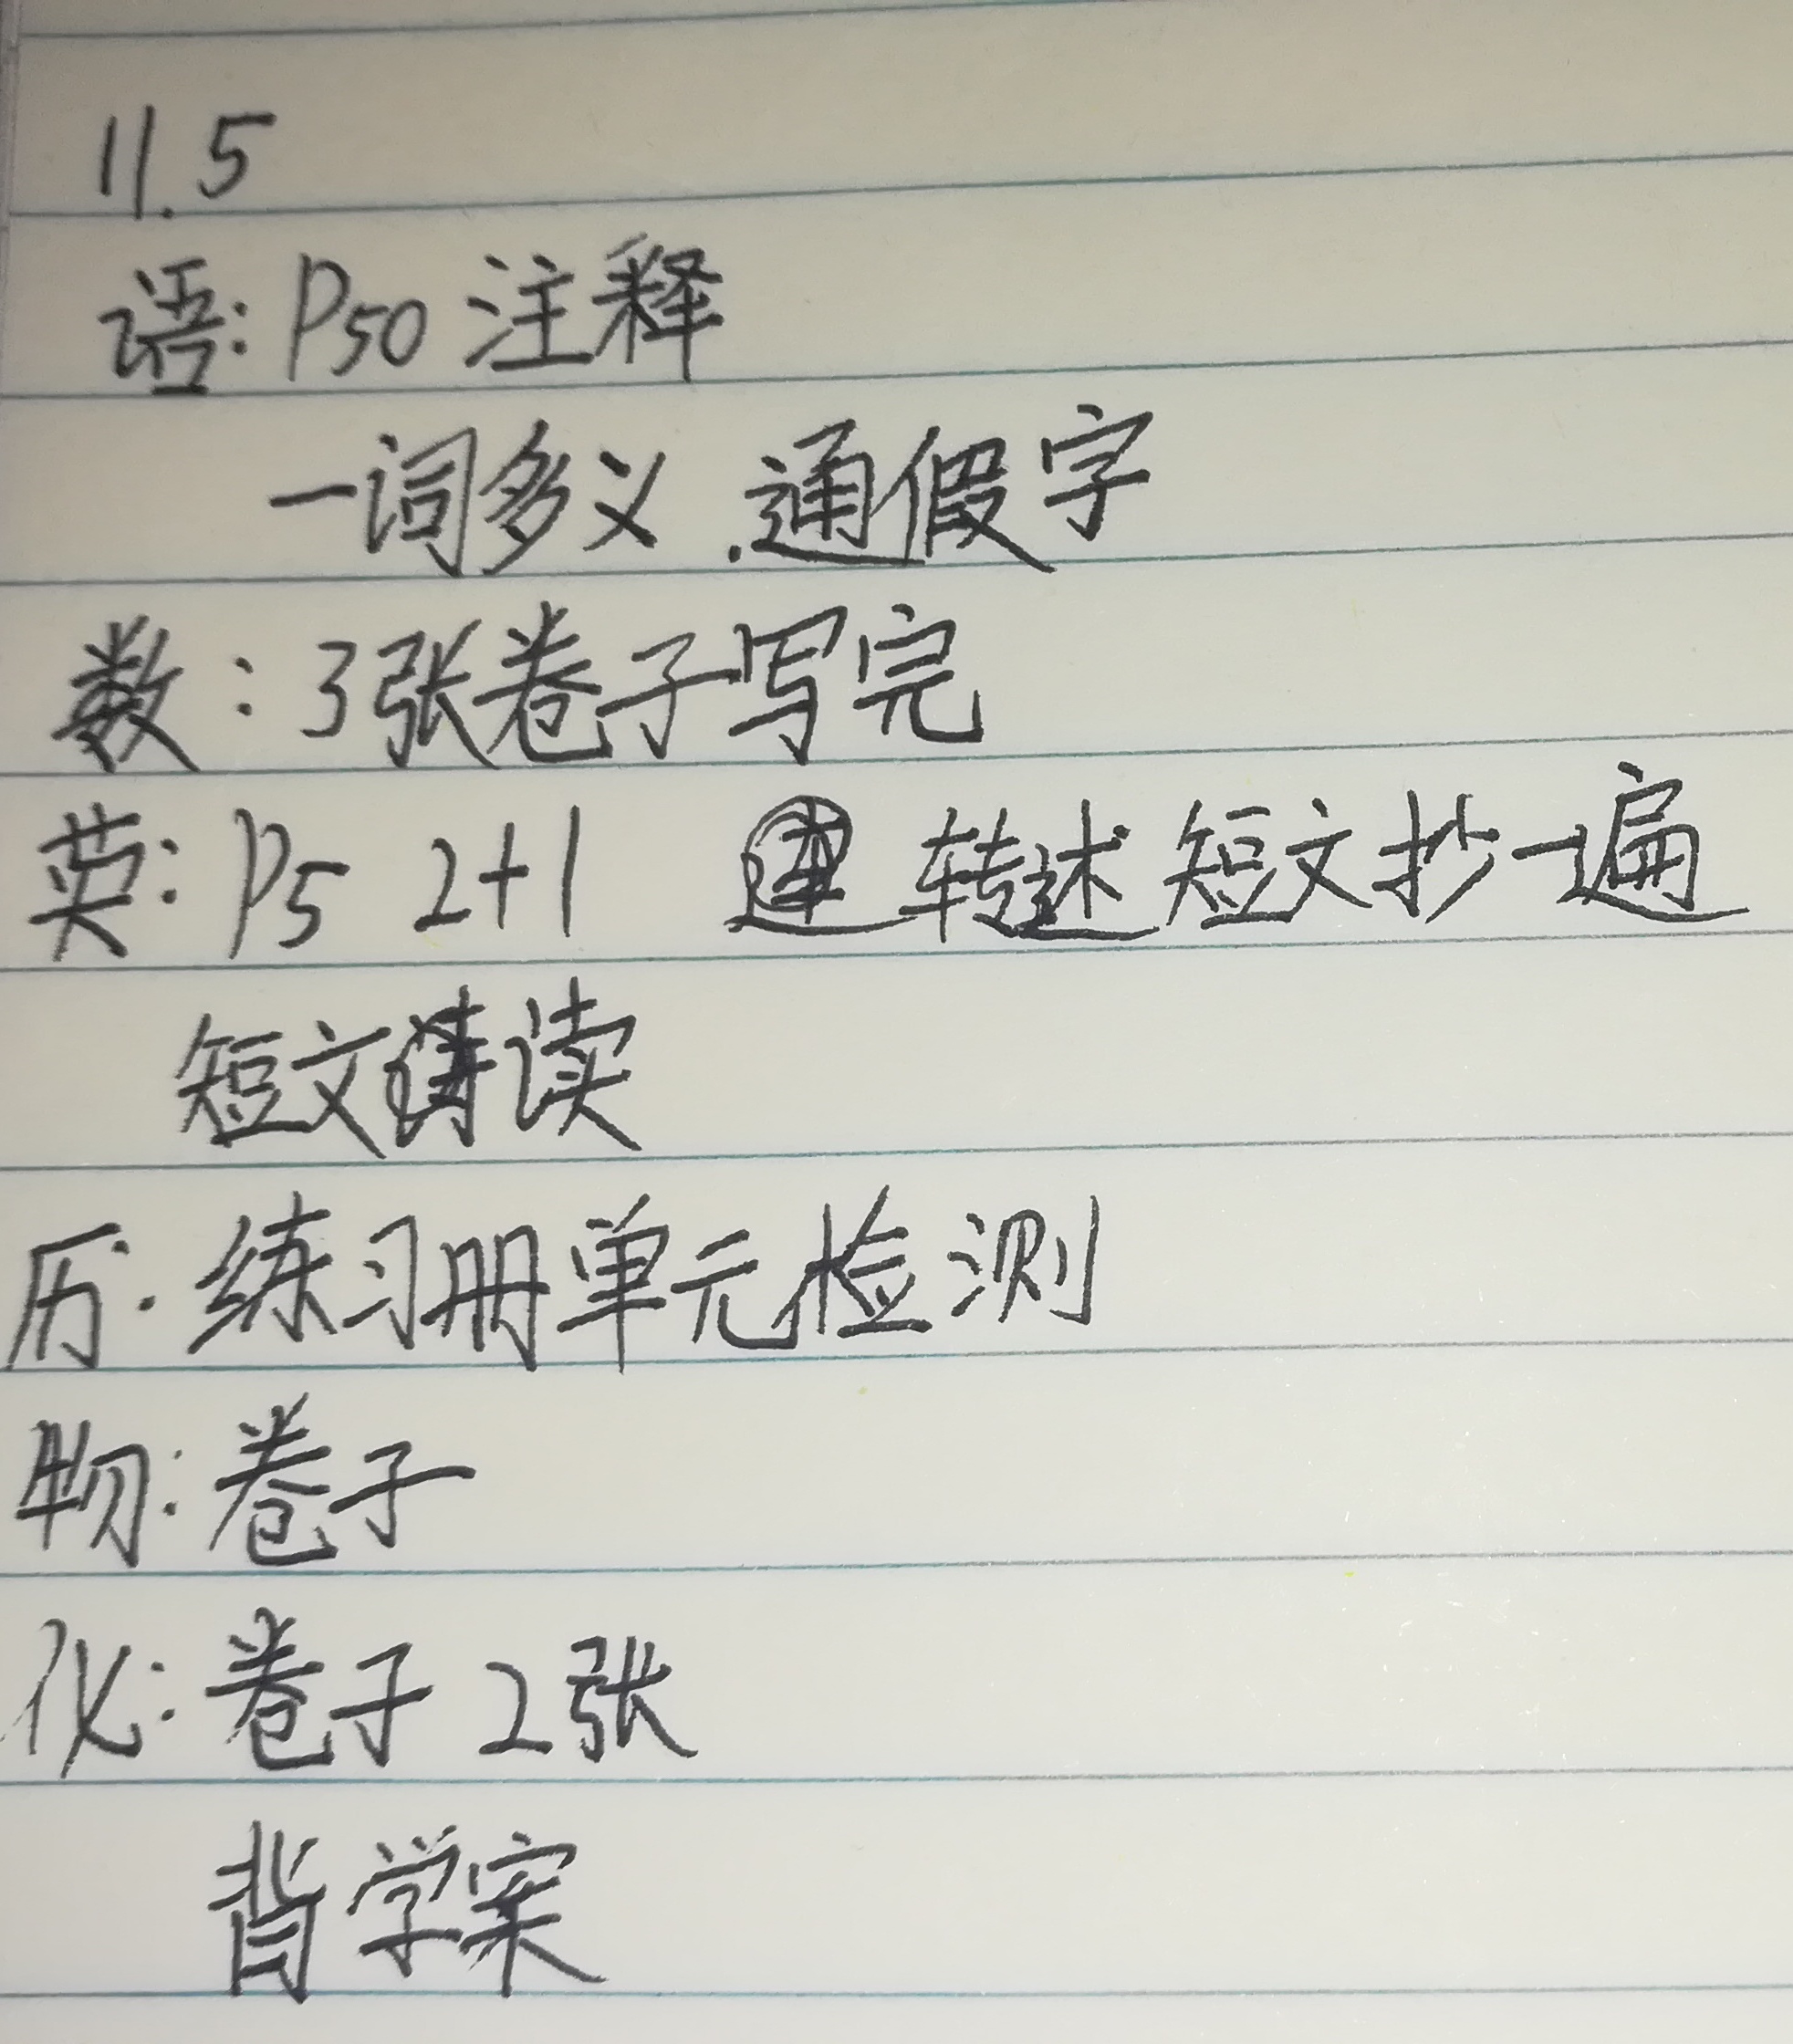 11.5
语: P50 注释
一词多义.通假字
数: 3张卷子写完
英: P5 2+1 转述短文抄一遍
短文 读
历: 练习册单元检测
物: 卷子
化: 卷子 2张
背学案